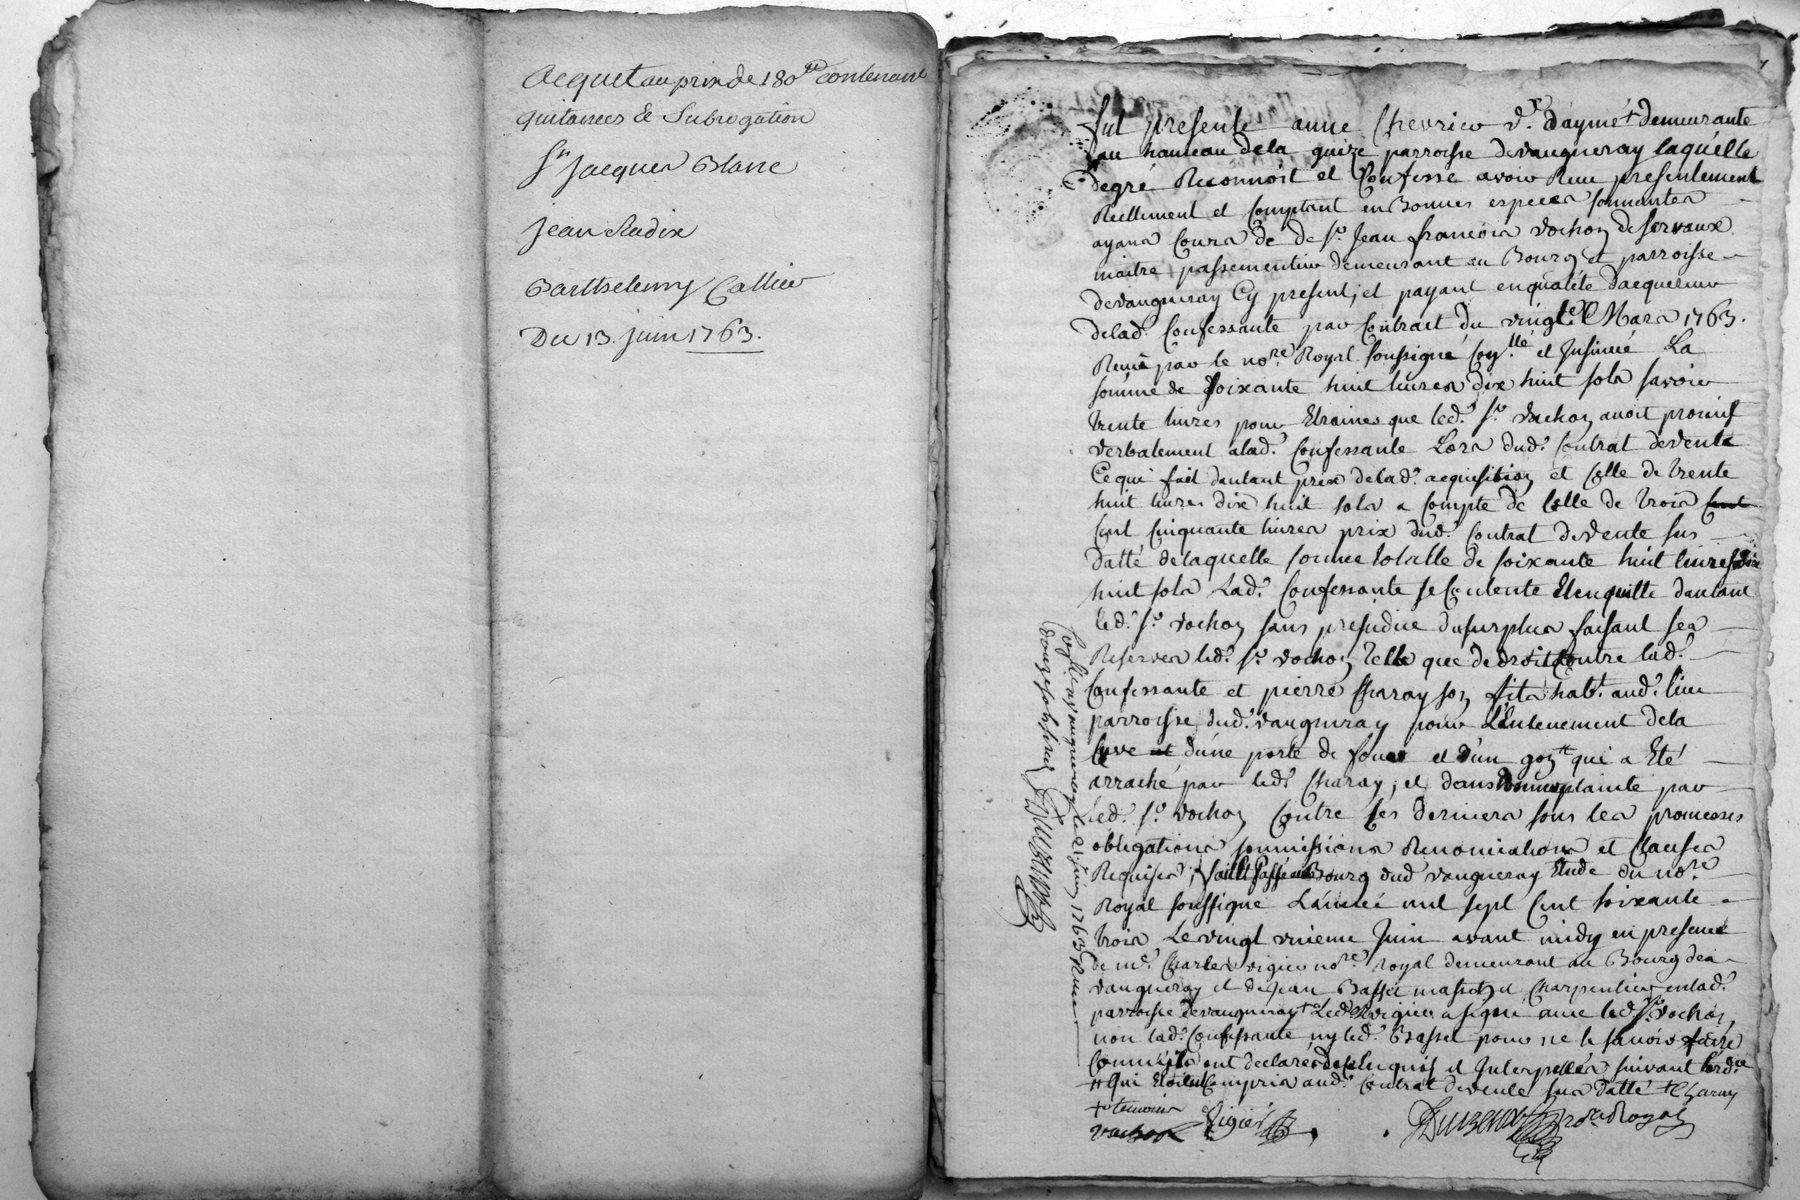 Acquet au prix de 180 ₶ contenant
quitances & Subrogation
Sr Jacques Blanc
Jean Radix
Barthelemy Callier
Du 13. juin 1763.
fut presente anne Chevrier ve. daymé + demeurante
au hameau de la guize parroisse devaugneray laquelle
degré Reconnoit et Confesse avoir Reçu presentement
Reellement et Comptant en Bonnes especes sonnantes
ayans Cours de de Sr. Jean françois vochon de servaux
maitre passementier demeurant au Bourg et parroisse
devaugneray Cy present, et payant en qualité dacquereur
delad. Confessante par Contrait du vingt Mars 1763.
Reçu par le nore. Royal soussigné Con.lle et Insinué La
somme de soixante huit livres dix huit sols savoir
trente livres pour Etraines que led. Sr. vochon avoit promis
verbalement alad. Confessante Lors dud. Contrat devente
Ce qui fait dautant prix delad. acquisition et Celle de trente
huit livres dix huit sols a Compte de Celle de trois
Cent Cinquante livres prix dud. Contrat devente sus
datté delaquelle somme totalle de soixante huit livres dix
huit sols Lad. Confessante se Contente Et en quitte dautant
led. Sr. vochon sans prejudice du surplus faisant ses
Reserves led. Sr. vochon telle que de droit Contre lad.
Confessante et pierre Charay son fils habt. aud. lieu
parroisse dud. vaugneray pour L'Enlevement dela
Cuve et d'une porte de four et d'un gon # qui a Eté
arraché par led. Charay; et dans plainte par
led. Sr. vochon Contre ses derniers sous les promesses
obligations soumissions Renonciations et Clauses
Requises; fait et Passé au Bourg dud vaugneray Etude du nore.
Royal soussigné L'année mil sept Cent soixante
trois Le vingt unieme Juin avant midy en presence
de me. Charles vigier nore. royal demeurant au Bourg de
vaugneray et de Jean Basset Charpentier en lad.
parroisse devaugneray + Led. vigier a signé avec led. Sr. vochon,
non lad. Confessante ny led. Basset pour ne le savoir faire
Comme ils ont declarés de Ce Enquis et Interpellés suivant
# qui Etoient Compris aud. Contrat devente sus datté + Charay
+ temoins
vochon Vigier nore. Royal
vaugneray le 21 juin 1763 Reçu
douze sols six d.